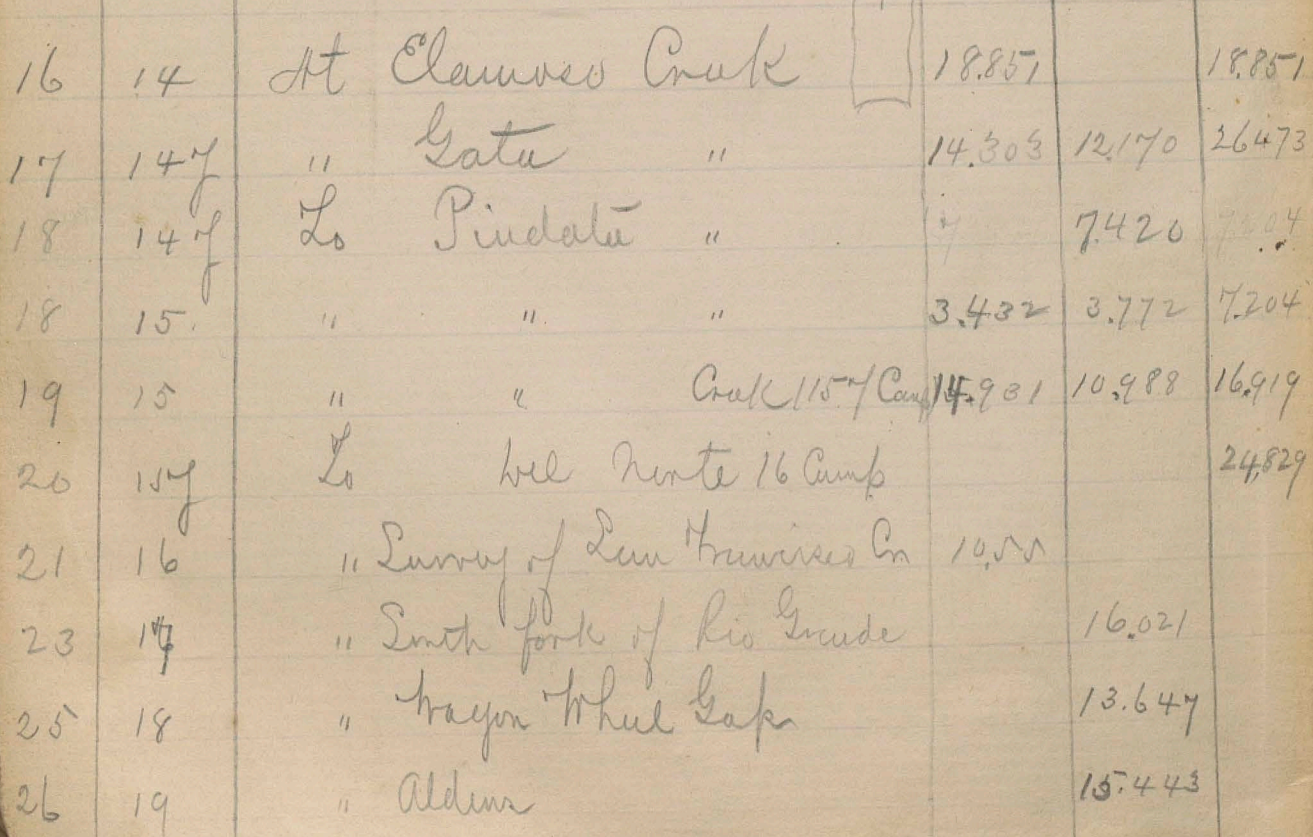 16 14 At Elamoso Creek 18.851 18.851
17 14 7 " Gata " 14.303 12.170 26473
18 14 7 To Piedata " 7.420 7.204
18 15. " " " 3.432 3.772 7.204
19 15 " " Creek 115 7 Camp .931 10.988 16.919
20 15 7 To Del Norte 16 Camp 24,829
21 16 " Survey of San Francisco Cr 10.55
23 17 " South fork of Rio Grande 16.021
25 18 " Wagon Wheel Gap 13.647
26 19 " Aldens 15.443